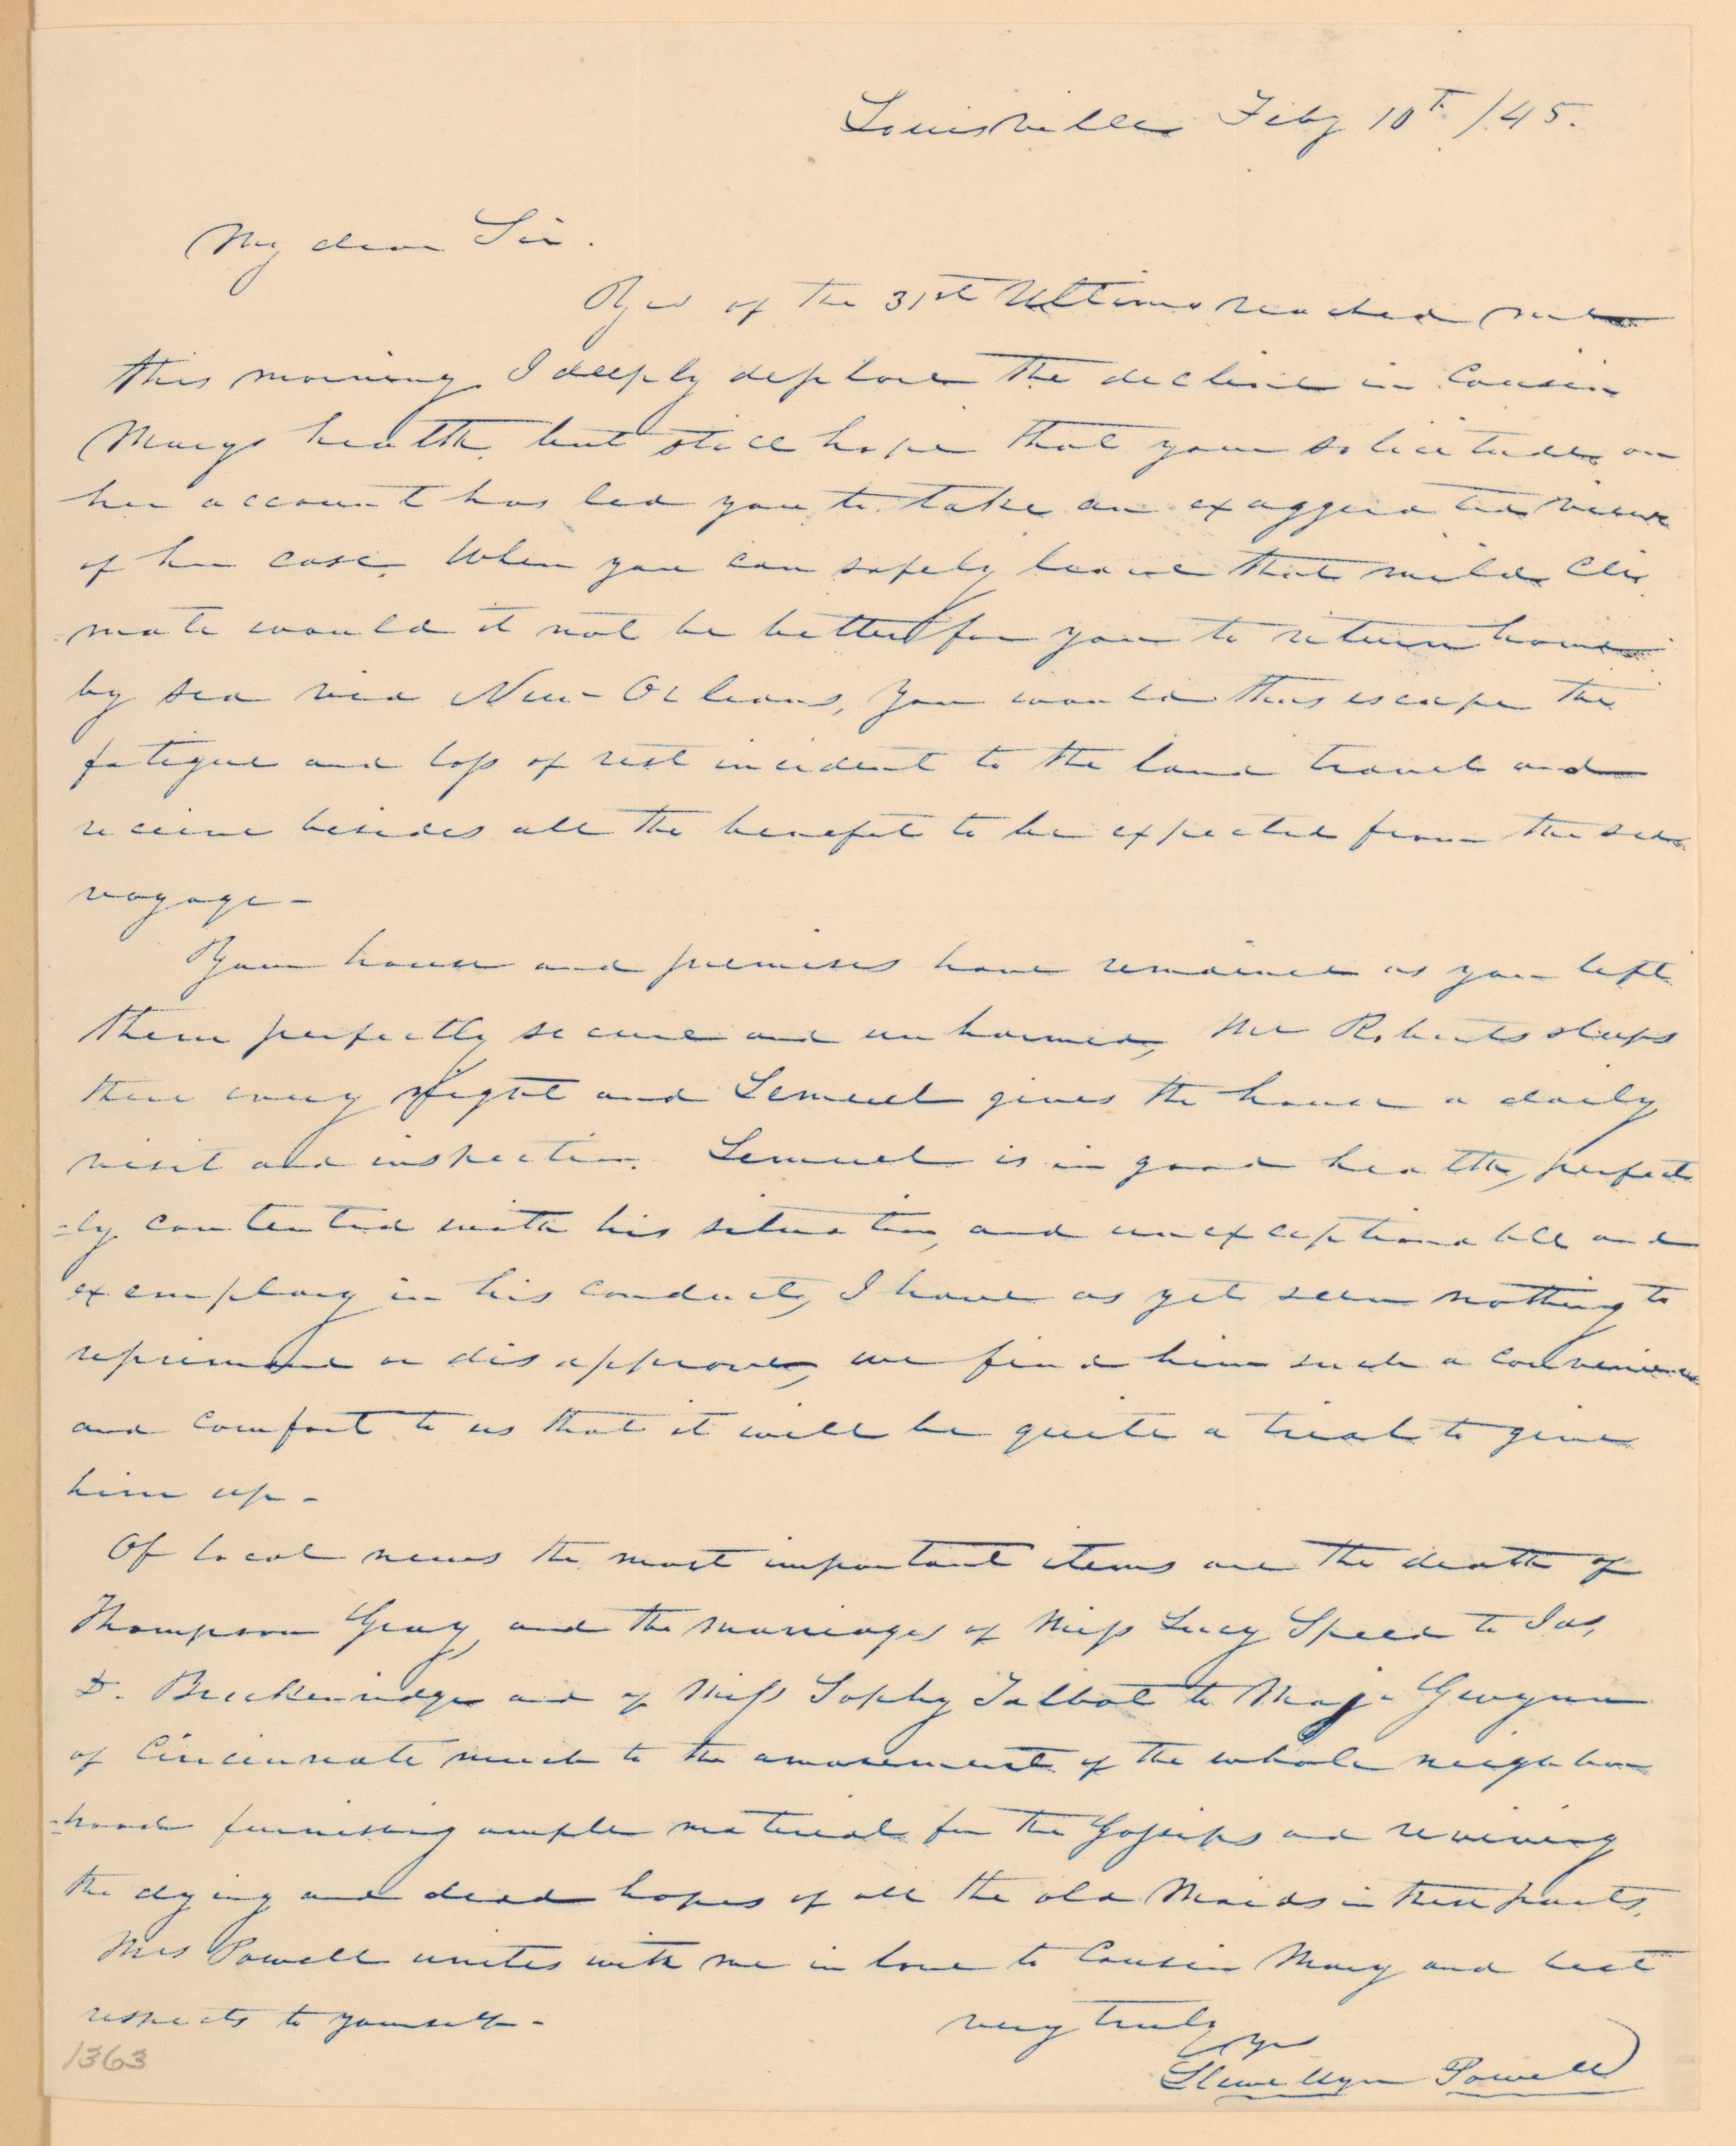 Louisville Feby 10th /45.
My dear Sir.
Yrs of the 31st Ultimo reached me
this morning. I deeply deplore the decline in Cousin
Marys health, but still hope that your solicitude on
her account has led you to take an exaggerated view
of her case. When you can safely leave that mild Cli
=mate would it not be better for you to return home
by sea via New-Orleans, you would thus escape the
fatigue and loss of rest incident to the land travel and
receive besides all the benefit to be expected from the sea
voyage-
Your house and premises have remained as you left
them perfectly secure and unharmed, Mr Roberts sleeps
there every Night and Lemuel gives the house a daily
visit and inspection. Lemuel is in good health, perfect
=ly contented with his situation, and unexceptionable and
exemplary in his conduct, I have as yet seen nothing to
reprimand or disapprove, we find him such a convenience
and comfort to us that it will be quite a trial to give
him up-
Of local news the most important items are the death of
Thompson Gray, and the marriages of Miss Lucy Speed to Jas,
D. Breckenridge and of Miss Sophy Talbot to Majr Gwynn
of Cincinnati much to the amusement of the whole neighbor
=hood furnishing ample material for the Gossips and reviving
the dying and dead hopes of all the old Maids in these parts.
Mrs Powell unites with me in love to Cousin Mary and best
respects to yourself-
very truly
yrs
Llewellyn Powell
1363